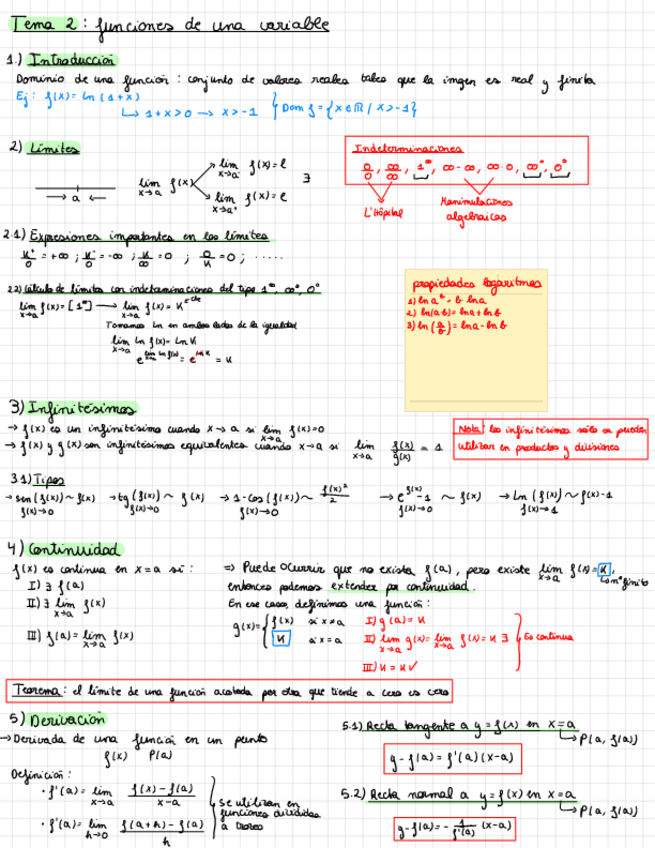 Tema 2: funciones de una variable
1.) Introducción
Dominio de una función: conjunto de valores reales tales que la imagen es real y finita
Ej: f(x) = ln(1+x)
↳ 1+x>0 → x>-1 } Dom f = {x∈ℝ / x>-1}
2) Límites
lim x→a f(x)
lim x→a⁻ f(x) = l
lim x→a⁺ f(x) = l
∃
→ a ←
Indeterminaciones
0/0, ∞/∞, 1^∞, ∞-∞, ∞·0, ∞⁰, 0⁰
L'Hôpital
Manipulaciones algebraicas
2.1) Expresiones importantes en los límites
K⁺/0 = +∞ ; K⁻/0 = -∞ ; K/∞ = 0 ; 0/K = 0 ; .....
2.2) Cálculo de límites con indeterminaciones del tipo 1^∞, ∞⁰, 0⁰
lim x→a f(x) = [1^∞] → lim x→a f(x) = K
Tomamos ln en ambos lados de la igualdad
lim x→a ln f(x) = ln K
e^(lim x→a ln f(x)) = e^(ln K) = K
propiedades logaritmos
1) ln a^b = b·lna
2) ln(a·b) = lna + lnb
3) ln(a/b) = lna - lnb
3) Infinitésimos
→ f(x) es un infinitésimo cuando x→a si lim x→a f(x)=0
→ f(x) y g(x) son infinitésimos equivalentes cuando x→a si lim x→a f(x)/g(x) = 1
Nota: los infinitésimos sólo se pueden
utilizar en productos y divisiones
3.1) Tipos
→ sen(f(x)) ~ f(x) → tg(f(x)) ~ f(x) → 1-cos(f(x)) ~ f(x)²/2 → e^f(x) - 1 ~ f(x) → ln(f(x)) ~ f(x)-1
f(x)→0 f(x)→0 f(x)→0 f(x)→0 f(x)→1
4) Continuidad
f(x) es continua en x=a si:
I) ∃ f(a)
II) ∃ lim x→a f(x)
III) f(a) = lim x→a f(x)
⇒ Puede ocurrir que no exista f(a), pero existe lim x→a f(x) = K,
↳ nº finito
entonces podemos extender por continuidad.
En ese caso, definimos una función:
g(x) = { f(x) si x≠a
K si x=a
I) g(a) = K
II) lim x→a g(x) = lim x→a f(x) = K ∃
III) K = K ✓
} Es continua
Teorema: el límite de una función acotada por otra que tiende a cero es cero
5) Derivación
→ Derivada de una función en un punto
f(x) P(a)
Definición:
· f'(a) = lim x→a (f(x)-f(a))/(x-a)
· f'(a) = lim h→0 (f(a+h)-f(a))/h
} se utilizan en
funciones divididas
a trozos
5.1) Recta tangente a y=f(x) en x=a
↳ P(a, f(a))
y-f(a) = f'(a)(x-a)
5.2) Recta normal a y=f(x) en x=a
↳ P(a, f(a))
y-f(a) = - 1/f'(a) (x-a)